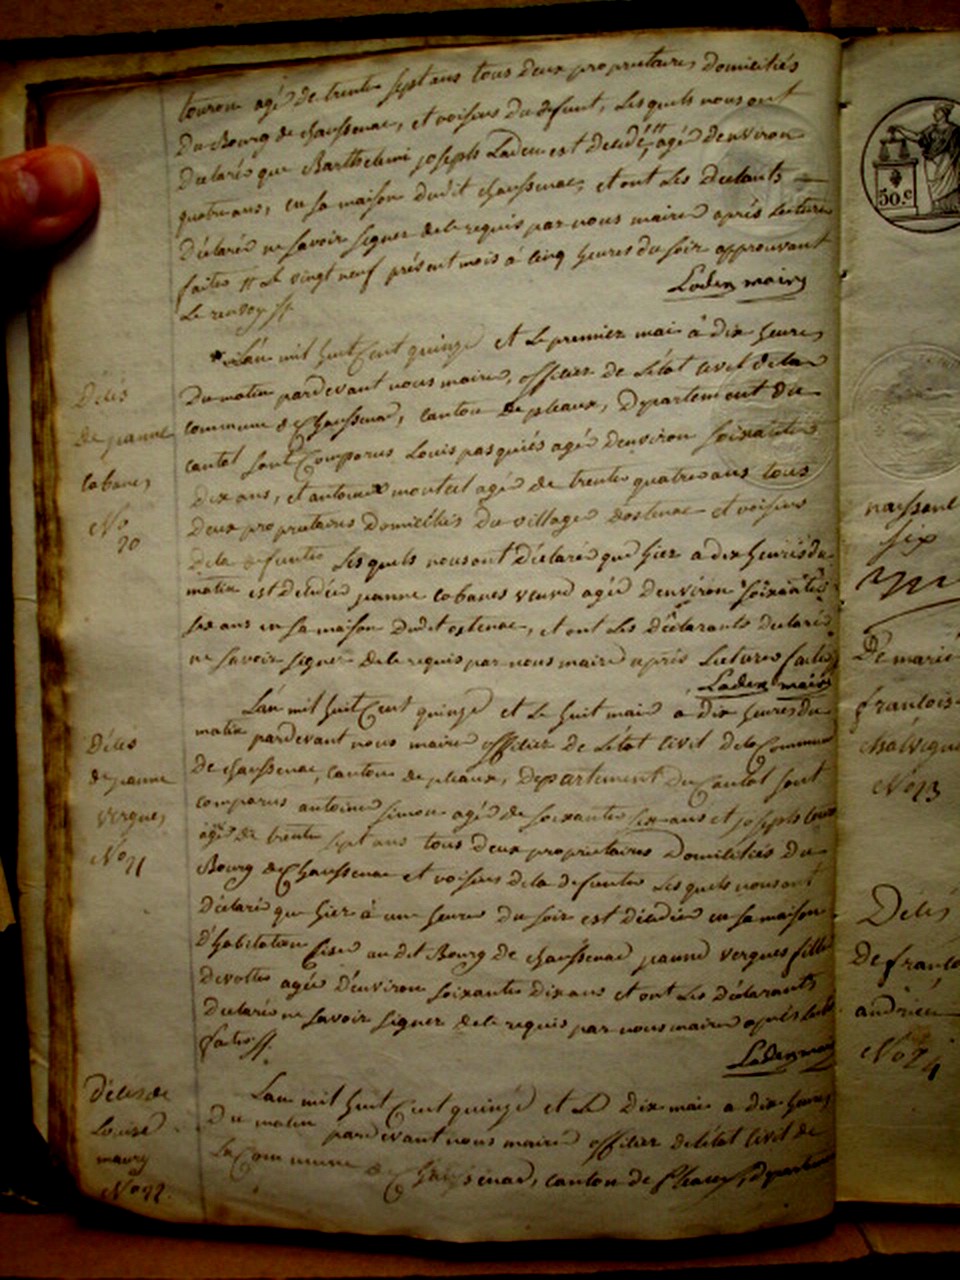 touron agé de trente sept ans tous deux proprietaires domiciliés
Du Bourg de chaussenac, et voisins du defunt, Lesquels nous ont
Declaré que Barthelemi joseph Laden est décédé, agé denviron
quatre ans, en sa maison dudit chaussenac, et ont Les Declarants
Déclaré ne savoir signer dele requis par nous maire après Lecture
faite # Le vingt neuf présent mois à cinq heures du soir approuvant
Le renvoy #.
Laden maire
L'an mil huit Cent quinze et Le premier mai à dix heures
Du matin pardevant nous maire, officier de L'état Civil dela
commune de Chaussenac, canton de pleaux, Departement du
cantal sont Comparus Louis pasquiés agé denviron soixante
Dix ans, et antoine monteil agé de trente quatre ans tous
Deux proprietaires Domiciliés Du village dostenac et voisins
Dela defunte Lesquels nous ont Déclaré que hier a dix heures du
matin est décédée jeanne cabanes veuve agée denviron soixante
six ans en sa maison Dudit ostenac, et ont Les Déclarants declaré
ne savoir signer dele requis par nous maire après Lecture faite
Laden maire
Décés
de jeanne
cabanes
No
20
L'an mil huit Cent quinze et Le huit mai a dix heures du
matin pardevant nous maire officier de L'état Civil dela Commune
de chaussenac, canton de pleaux, departement du Cantal sont
comparus antoine simon agé de soixante six ans et joseph
agé de trente sept ans tous deux proprietaires Domiciliés Du
Bourg de Chaussenac et voisins dela defunte Lesquels nous ont
Déclaré que hier à une heure du soir est décédée en sa maison
D'habitation sise audit Bourg de chaussenac jeanne vergnes fille
devotte agée d'environ soixante dix ans et ont Les Déclarants
Declaré ne savoir signer dele requis par nous maire après
faite #.
Laden maire
Décés
de jeanne
vergnes
No 21
L'an mil huit Cent quinze et Le Dix mai a dix heures
Du matin pardevant nous maire officier de létat Civil de
La Commune de Chaussenac, canton de Pleaux, departement
Décés de
Louise
maury
No 22.
50.c
naissane
six
De marie
francois
No 23
Décés
De franco
andrieu
No 24